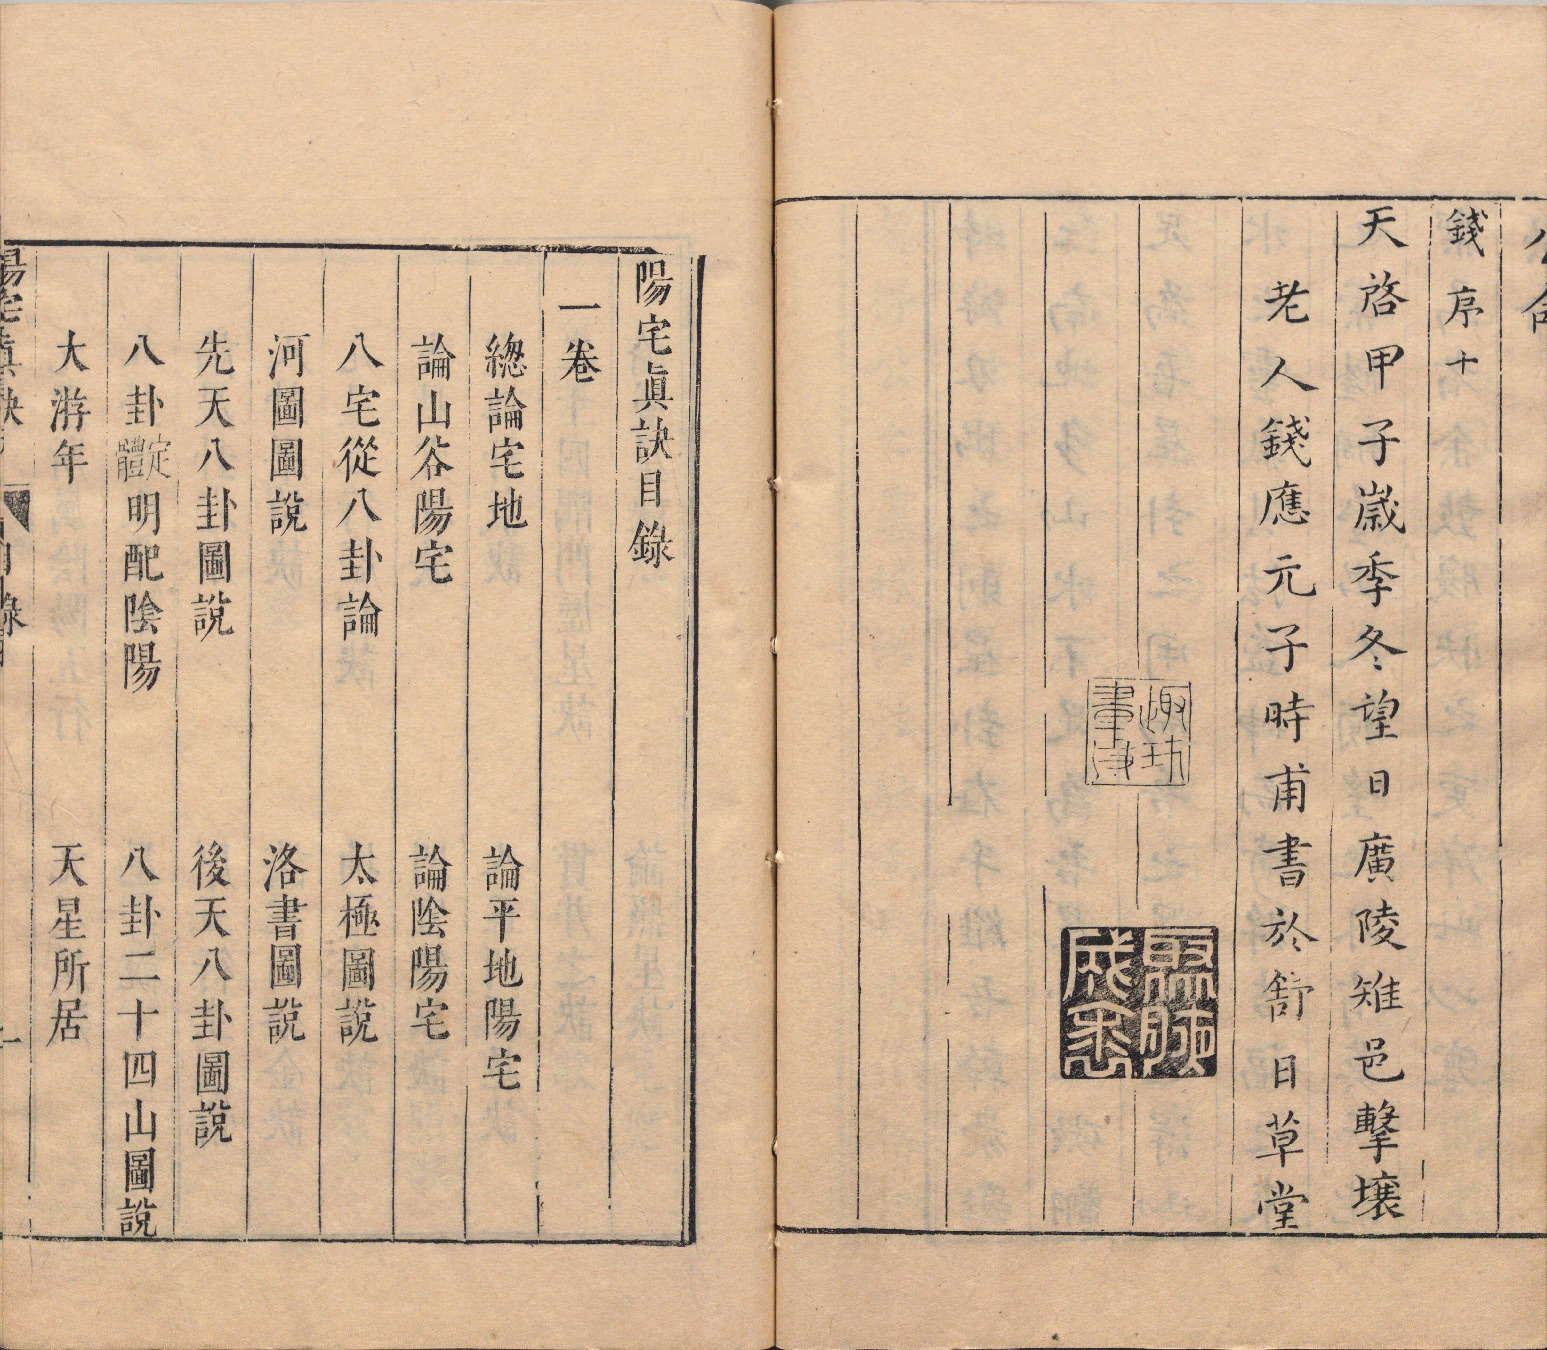 錢序十
天啓甲子嵗季冬望日廣陵雉邑擊壤
老人錢應元子時甫書於舒日草堂
陽宅眞訣目錄
一卷
緫論宅地 論平地陽宅
論山谷陽宅 論陰陽宅
八宅從八卦論 太極圖說
河圖圖說 洛書圖說
先天八卦圖說 後天八卦圖說
八卦定體明配陰陽 八卦二十四山圖說
大游年 天星所居
陽宅眞訣 目錄 一